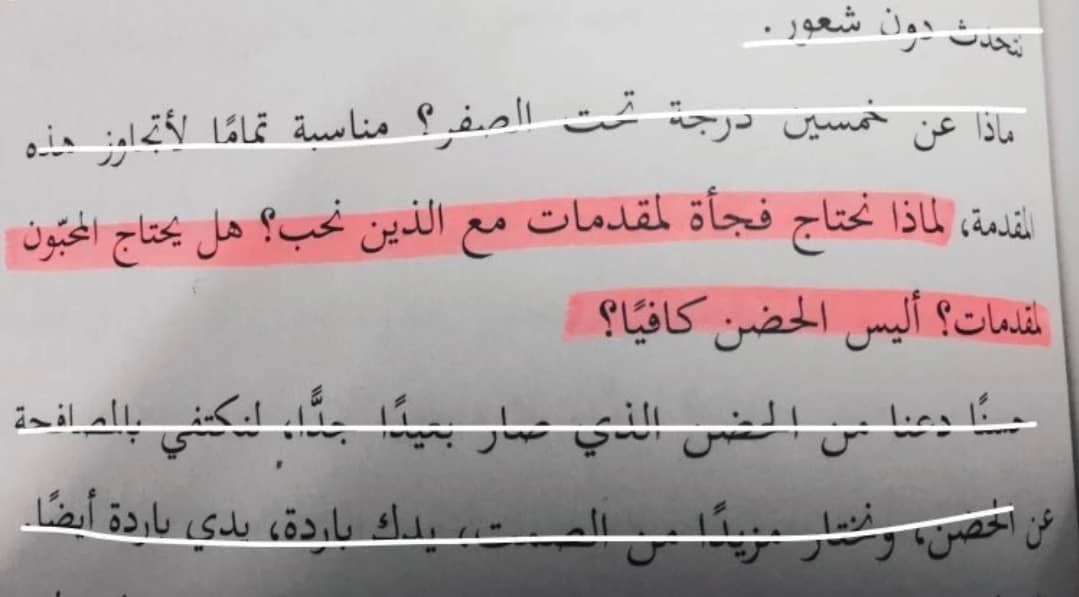 نتحدث دون شعور.
ماذا عن خمسين درجة تحت الصفر؟ مناسبة تمامًا لأتجاوز هذه
المقدمة، لماذا نحتاج فجأة لمقدمات مع الذين نحب؟ هل يحتاج المحبّون
لمقدمات؟ أليس الحضن كافيًا؟
حسنًا دعنا من الحضن الذي صار بعيدًا جدًّا، لنكتفي بالمصافحة
عن الحضن، ونختار مزيدًا من الصمت، يدك باردة، يدي باردة أيضًا.